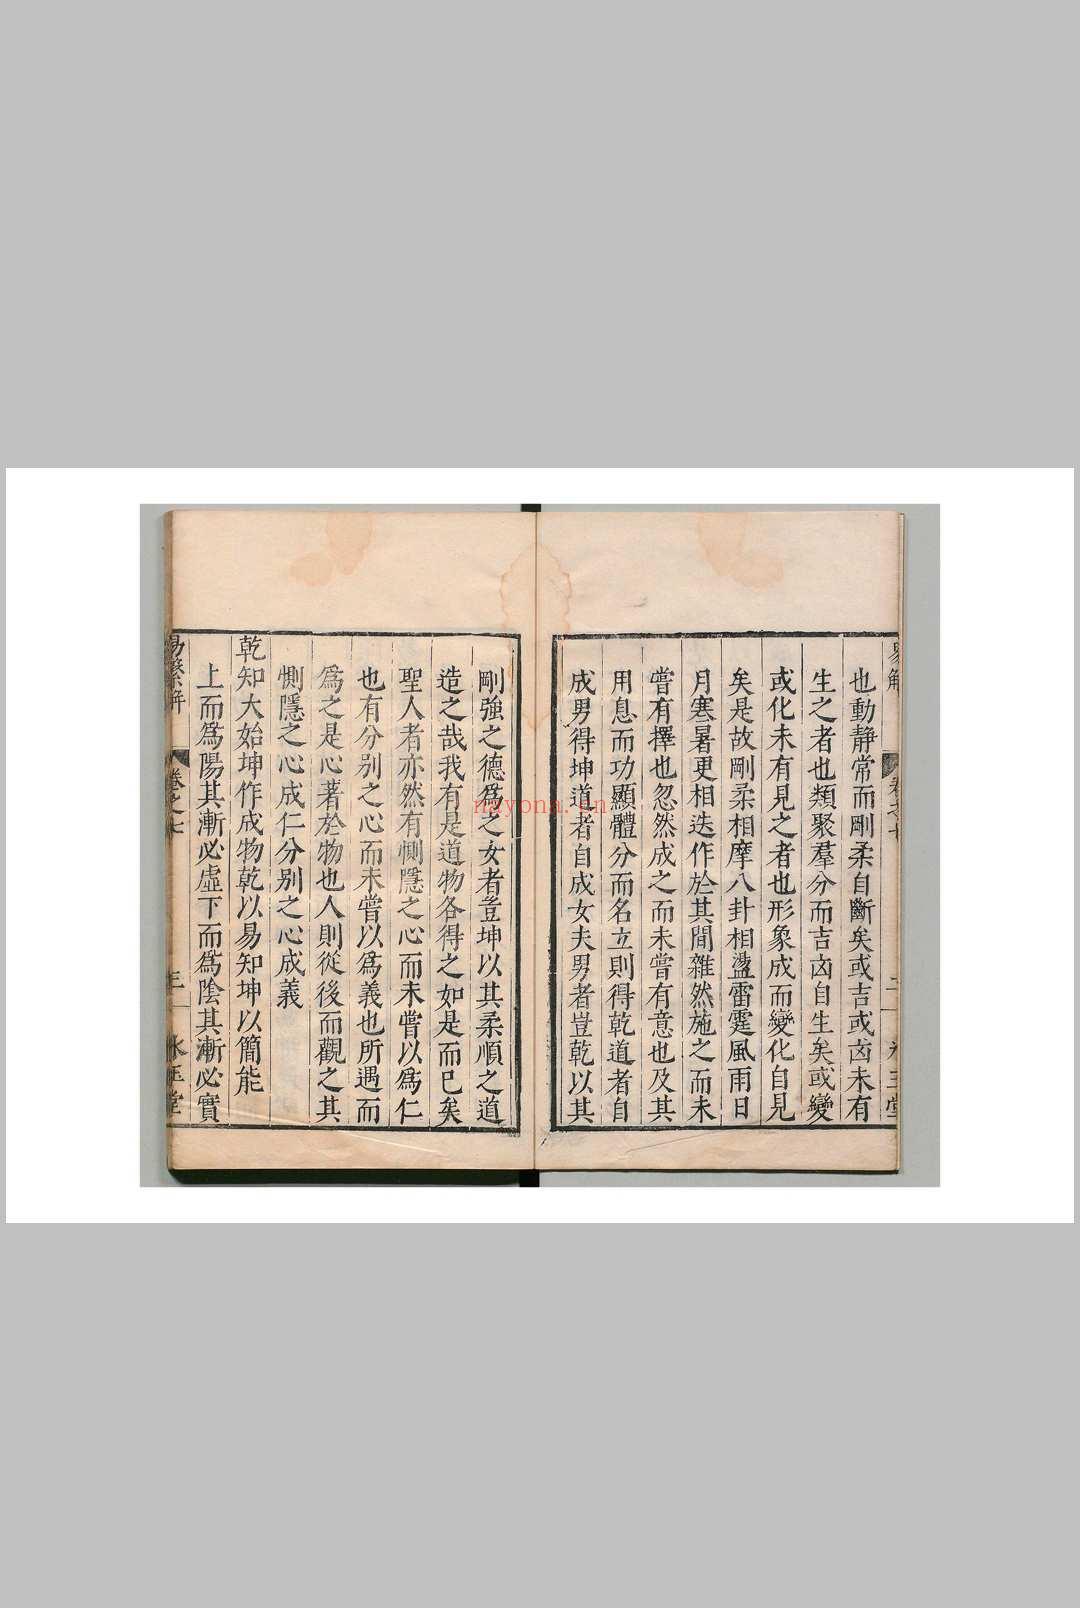 也動靜常而剛柔自斷矣或吉或凶未有
生之者也類聚羣分而吉凶自生矣或變
或化未有見之者也形象成而變化自見
矣是故剛柔相摩八卦相盪雷霆風雨日
月寒暑更相迭作於其間雜然施之而未
嘗有擇也忽然成之而未嘗有意也及其
用息而功顯體分而名立則得乾道者自
成男得坤道者自成女夫男者豈乾以其
剛強之德爲之女者豈坤以其柔順之道
造之哉我有是道物各得之如是而已矣
聖人者亦然有惻隱之心而未嘗以爲仁
也有分別之心而未嘗以爲義也所遇而
爲之是心著於物也人則從後而觀之其
惻隱之心成仁分別之心成義
乾知大始坤作成物乾以易知坤以簡能
上而爲陽其漸必虛下而爲陰其漸必實
易繫解 卷之七 三
nayona.cn